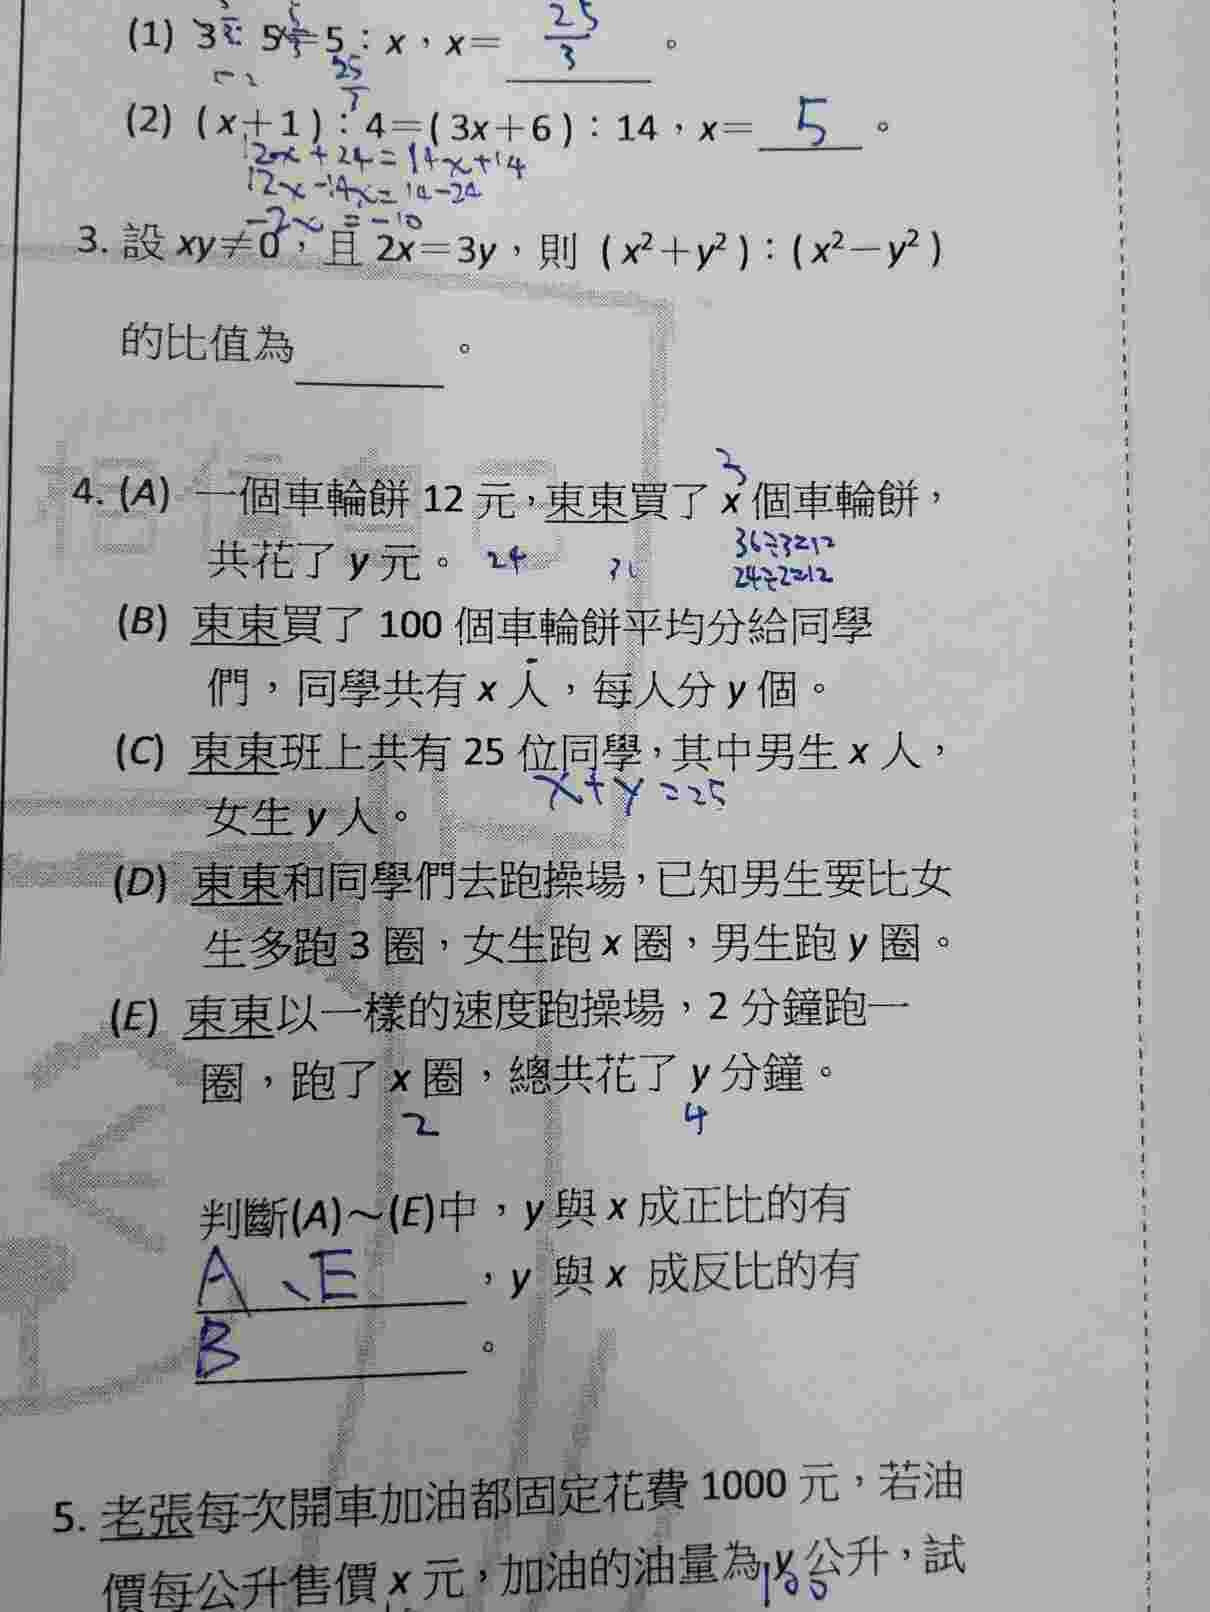 (1) 3：5＝5：x，x＝ 25/3 。
25
(2) (x＋1)：4＝(3x＋6)：14，x＝ 5 。
12x+24=14x+14
12x-14x=14-24
-2x=-10
3. 設 xy≠0，且 2x＝3y，則 (x²＋y²)：(x²－y²)
的比值為 。
3
4. (A) 一個車輪餅 12 元，東東買了 x 個車輪餅，
36÷3=12
共花了 y 元。 24
24÷2=12
(B) 東東買了 100 個車輪餅平均分給同學
們，同學共有 x 人，每人分 y 個。
(C) 東東班上共有 25 位同學，其中男生 x 人，
x+y=25
女生 y 人。
(D) 東東和同學們去跑操場，已知男生要比女
生多跑 3 圈，女生跑 x 圈，男生跑 y 圈。
(E) 東東以一樣的速度跑操場，2 分鐘跑一
圈，跑了 x 圈，總共花了 y 分鐘。
2 4
判斷(A)～(E)中，y 與 x 成正比的有
A、E ，y 與 x 成反比的有
B 。
5. 老張每次開車加油都固定花費 1000 元，若油
價每公升售價 x 元，加油的油量為 y 公升，試
100